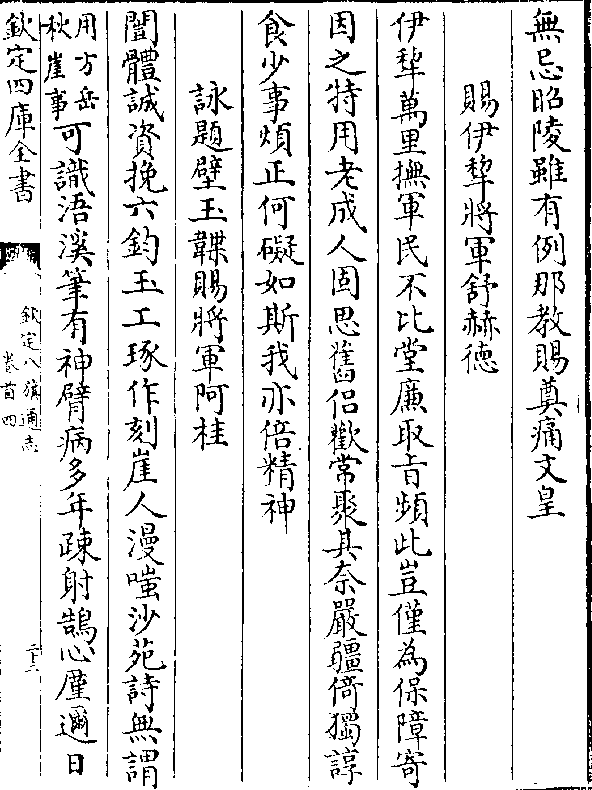 無忌昭陵雖有例那教賜奠痛文皇
賜伊犂將軍舒赫德
伊犂萬里撫軍民不比堂廉取旨頻此豈僅為保障寄
因之特用老成人固思舊侶歡常聚其奈嚴疆倚獨諄
食少事煩正何礙如斯我亦倍精神
詠題壁玉韘賜將軍阿桂
闓體誠資挽六鈞玉工琢作刻崖人漫嗤沙苑詩無謂
用方岳
秋崖事
可識浯溪筆有神臂病多年疎射鵠心廑邇日
欽定四庫全書
欽定八旗通志
卷首四
二十二